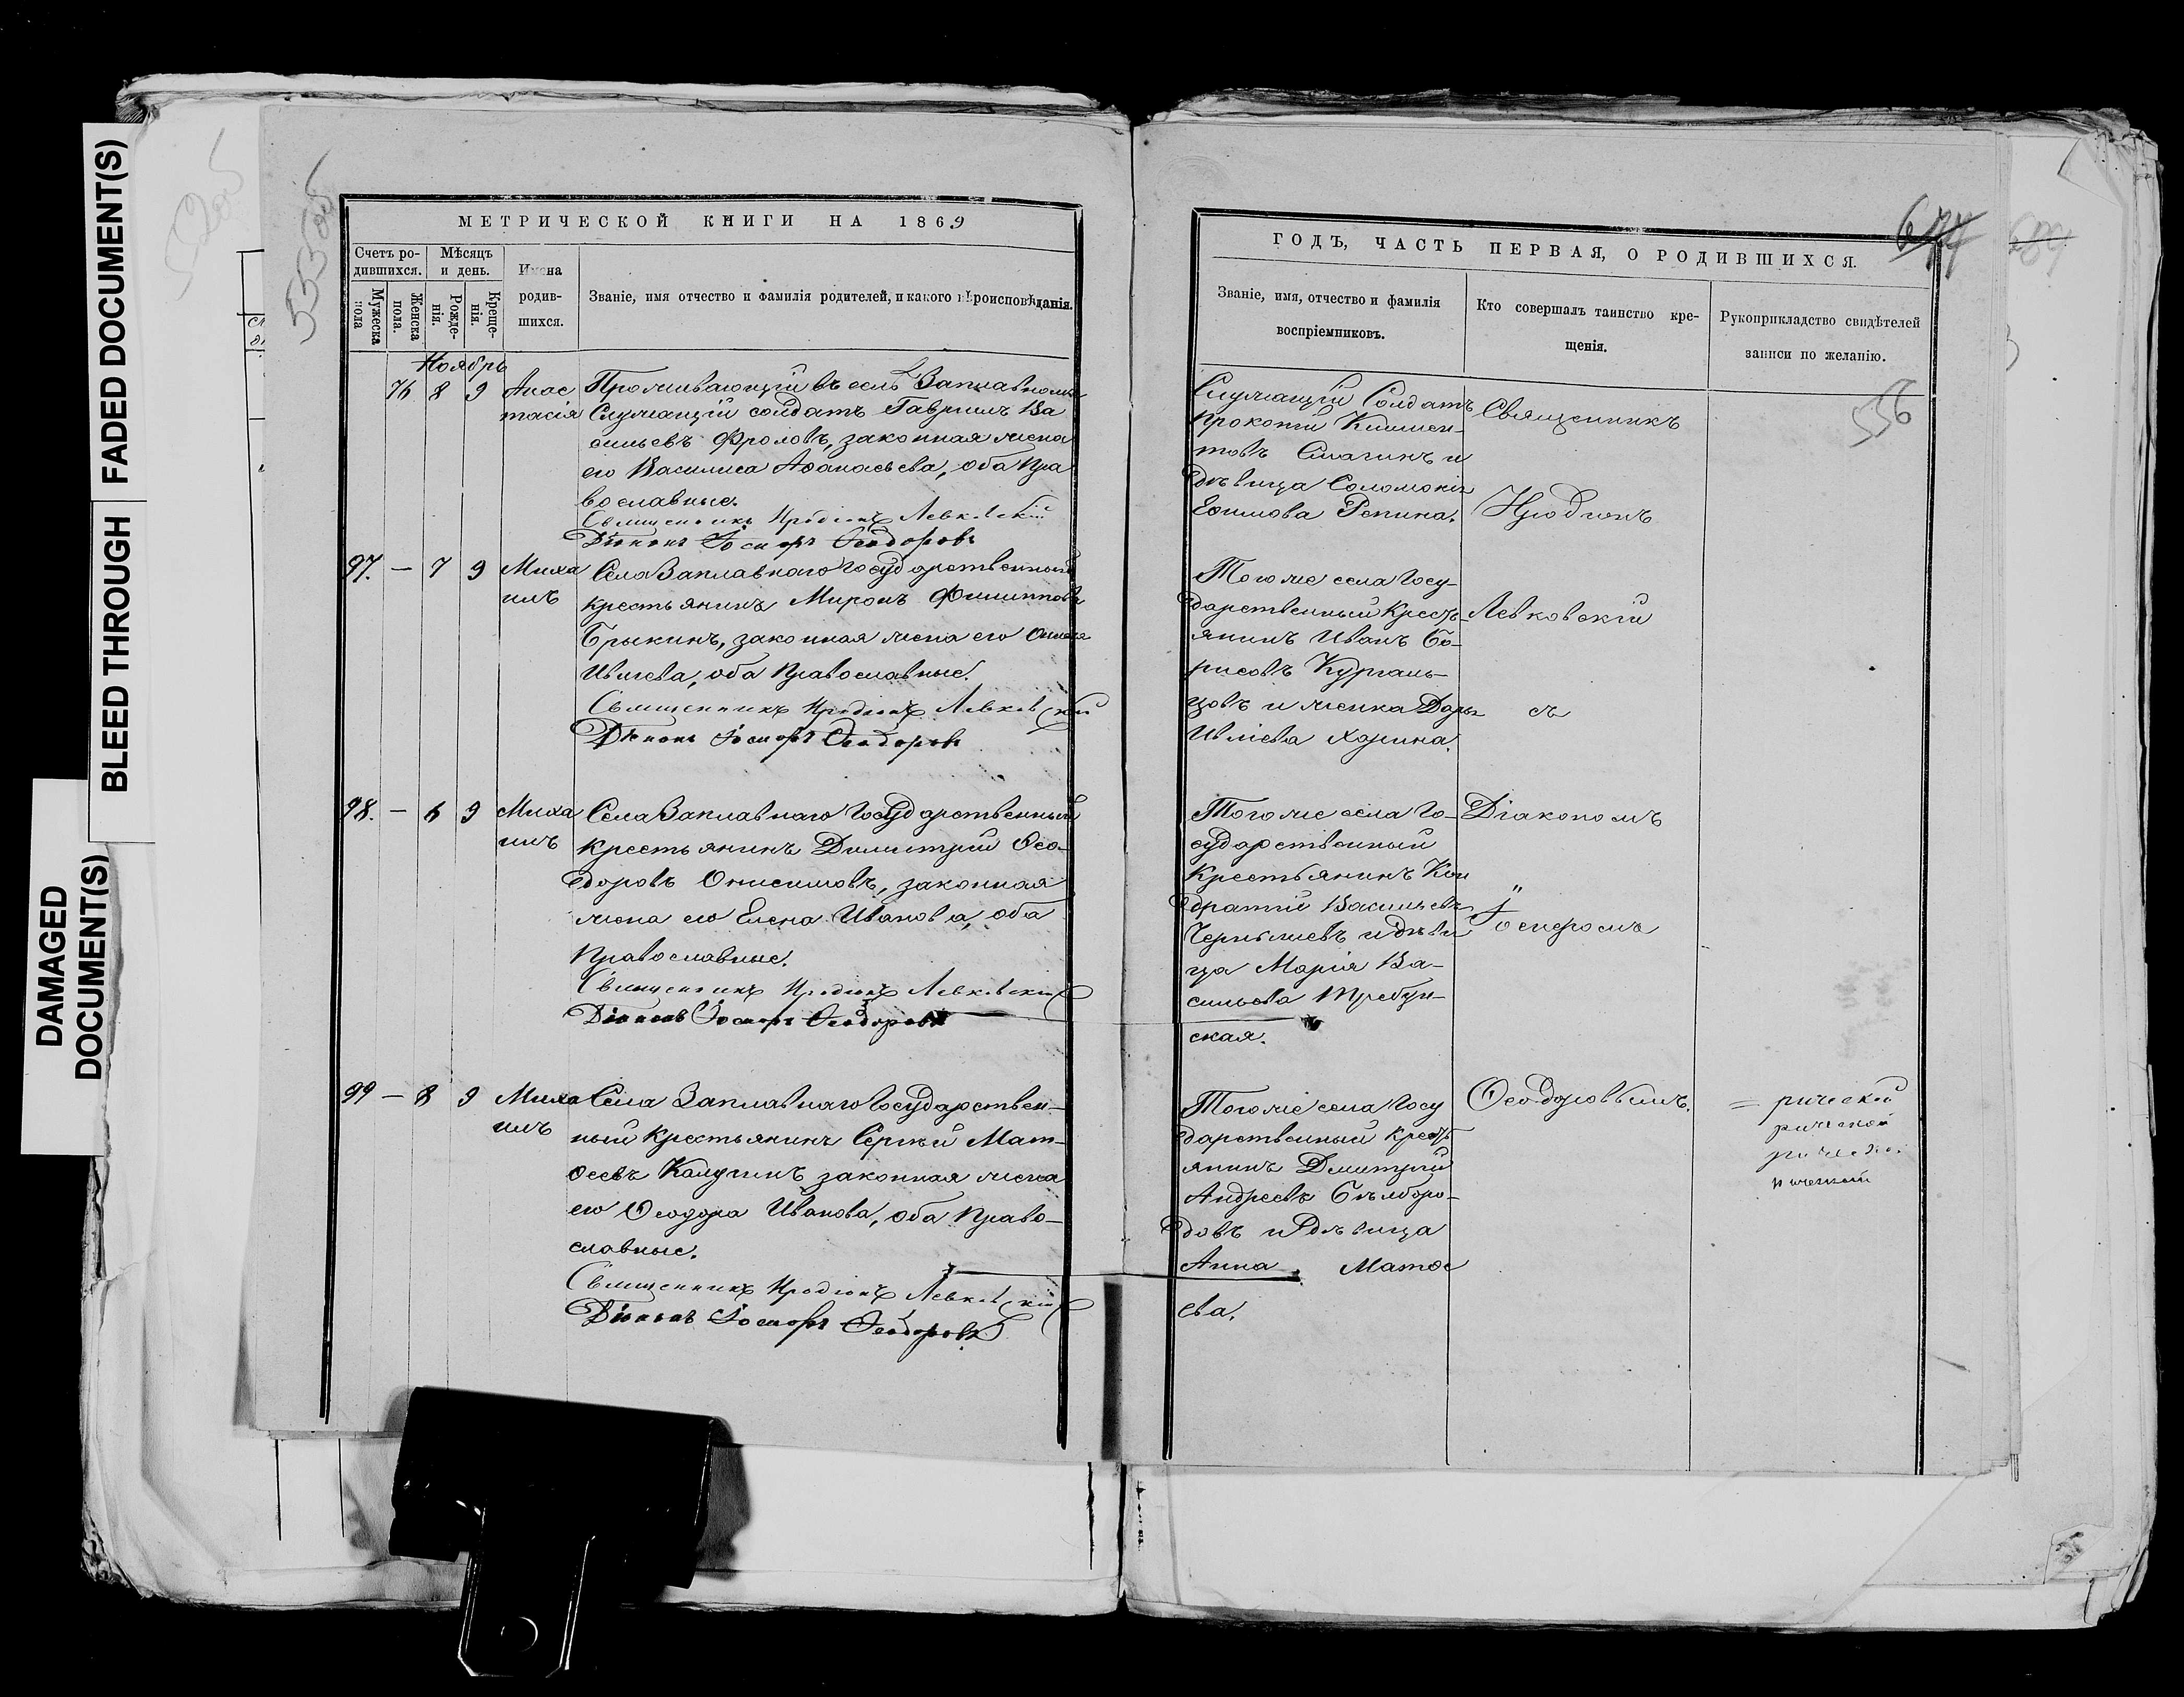 DAMAGED
DOCUMENT(S)
BLEED THROUGH
FADED DOCUMENT(S)
535об
МЕТРИЧЕСКОЙ КНИГИ НА 1869
Счетъ ро-
дившихся.
Мѣсяцъ
и день.
Мужеска
пола
Женска
пола.
Рожде-
нія.
Креще-
нія.
Имена
родив-
шихся.
Званіе, имя отчество и фамилія родителей, и какого вѣроисповѣданія.
Ноябрь
76 8 9 Анас
тасія
Проживающій въ селѣ Заплавномъ
Служащій солдатъ Гавріилъ Ва
сильевъ Фроловъ, законная жена
его Василиса Аѳанасьева, оба Пра
вославные.
Священникъ Иродіонъ Левковскій
Діаконъ Іосифъ Ѳеодоровъ
97. — 7 9 Миха
илъ
Села Заплавнаго Государственный
крестьянинъ Миронъ Филипповъ
Брыкинъ, законная жена его
Ивлева, оба Православные.
Священникъ Иродіонъ Левковскій
Діаконъ Іосифъ Ѳеодоровъ
98. — 6 9 Миха
илъ
Села Заплавнаго Государственный
крестьянинъ Димитрій Ѳео-
доровъ Онисимовъ, законная
жена его Елена Иванова, оба
Православные.
Священникъ Иродіонъ Левковскій
Діаконъ Іосифъ Ѳеодоровъ
99 — 8 9 Миха
илъ
Села Заплавнаго Государствен-
ный крестьянинъ Сергѣй Мат-
ѳеевъ Калугинъ законная жена
его Ѳеодора Иванова, оба Право-
славные.
Священникъ Иродіонъ Левковскій
Діаконъ Іосифъ Ѳеодоровъ
ГОДЪ, ЧАСТЬ ПЕРВАЯ, О РОДИВШИХСЯ.
Званіе, имя, отчество и фамилія
воспріемниковъ.
Кто совершалъ таинство кре-
щенія.
Рукоприкладство свидѣтелей
записи по желанію.
536
Служащій Солдатъ
Прокопій Климен-
товъ Смагинъ и
дѣвица Соломонія
Ефимова Репина.
Тогоже села Госу-
дарственный Кресть-
янинъ Иванъ Бо-
рисовъ Курганъ-
цовъ и женка Дарья
Ивліева Харина.
Тогоже села Го-
сударственный
Крестьянинъ Кон
дратій Васильевъ
Чернышевъ и дѣви
ца Марія Ва-
сильева Требун-
ская.
Тогоже села Госу
дарственный Кресть
янинъ Димитрій
Андреевъ Бѣлборо-
довъ и дѣвица
Анна Матѳе
ева.
Священникъ
Иродіонъ
Левковскій
съ
Діакономъ
Іосифомъ
Ѳеодоровымъ.
= рической
рической
рической